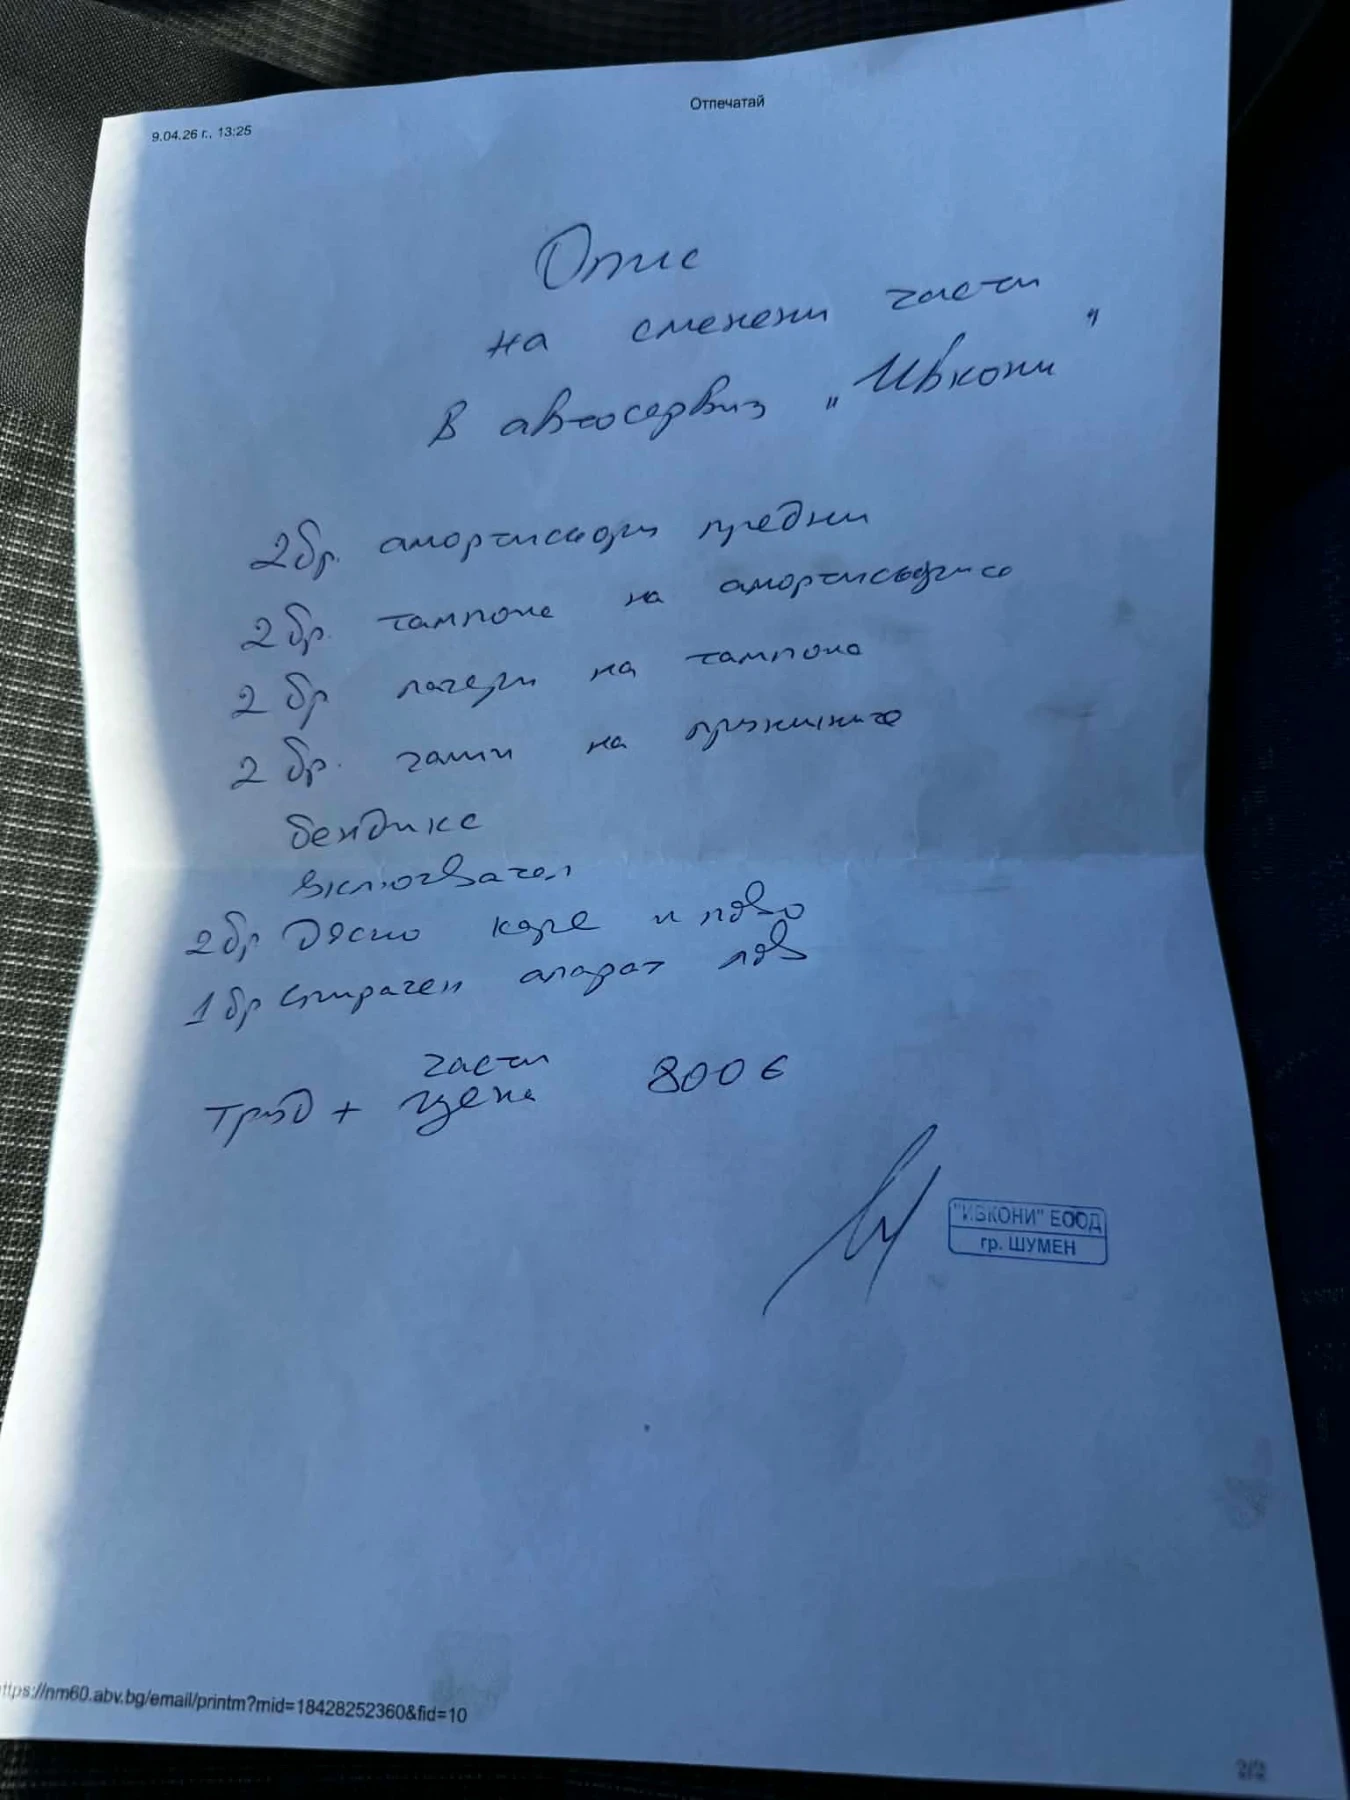 9.04.26 г., 13:25
Отпечатай
Опис
на сменени части
в автосервиз „Ивкони"
2 бр. амортисьори предни
2 бр. тампони на амортисьорите
2 бр лагери на тампона
2 бр. гами на пружините
бендикс
включвател
2 бр дясно каре и ляво
1 бр спирачен апарат ляв
части
труд + цена 800 €
"ИВКОНИ" ЕООД
гр. ШУМЕН
ttps://nm60.abv.bg/email/printm?mid=18428252360&fid=10
2/2